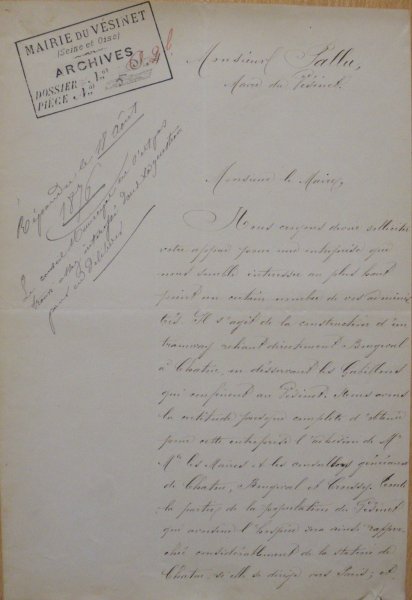 MAIRIE DU VÉSINET
(Seine et Oise)
ARCHIVES
DOSSIER : Lre
PIÈCE Nos 5
Monsieur Pallu,
Maire du Vésinet.
Répondu le 18 Août
1876
Le conseil Municipal ne s'est pas
dans la question
Monsieur le Maire,
Nous croyons devoir solliciter
votre appui pour une entreprise qui
nous semble intéresser au plus haut
point un certain nombre de vos adminis
trés. Il s'agit de la construction d'un
tramway reliant directement Bougival
à Chatou, en desservant les Gabillons
qui confinent au Vésinet. Nous avons
la certitude presque complète d'obtenir
pour cette entreprise l'adhésion de Mrs
les Maires et les conseillers généraux
de Chatou, Bougival et Croissy. Toute
la partie de la population du Vésinet
qui avoisine l'hospice sera ainsi rappro-
chée considérablement de la station de
Chatou, si elle se dirige vers Paris; et